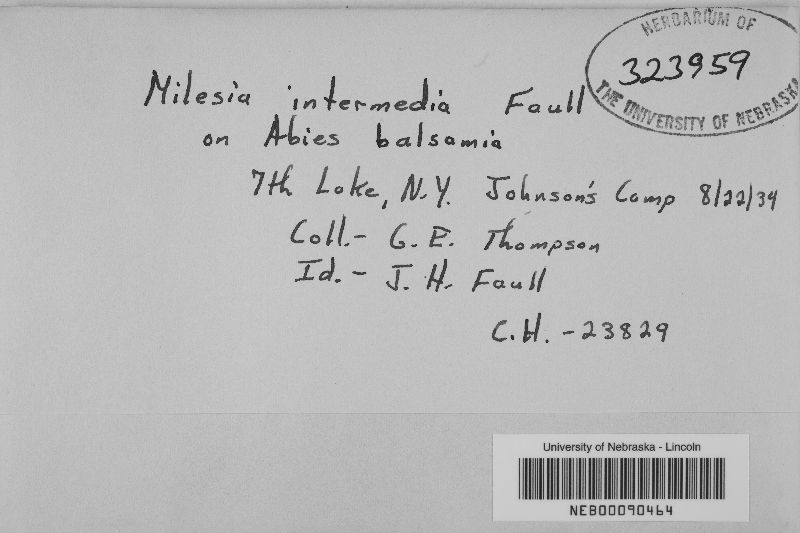 HERBARIUM OF
323959
THE UNIVERSITY OF NEBRASKA
Milesia intermedia Faull
on Abies balsamia
7th Lake, N.Y. Johnson's Camp 8/22/34
Coll.- G. E. Thompson
Id. - J. H. Faull
C.H. -23829
University of Nebraska - Lincoln
NEB00090464